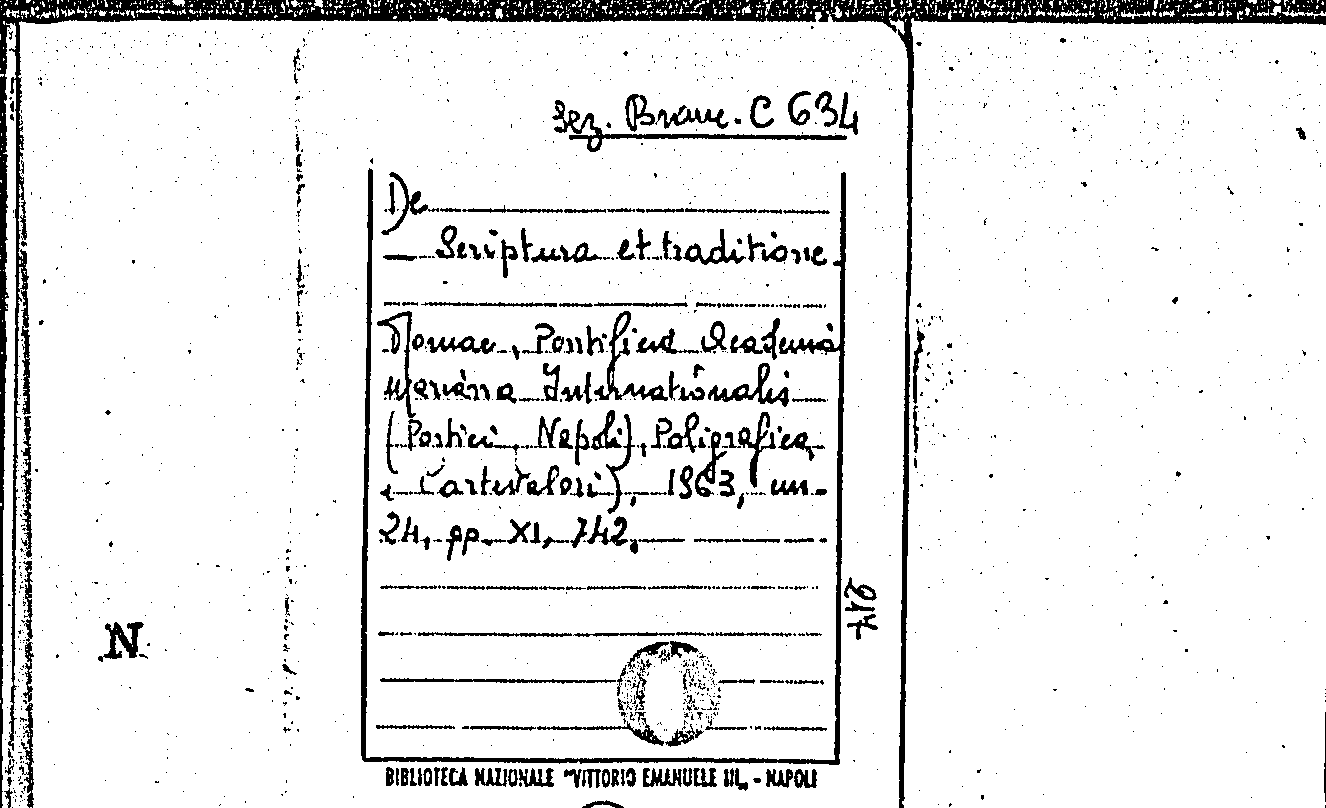 Sez. Branc. C 634
De
— Scriptura et traditione.
Romae, Pontificia Academia
Mariana Internationalis
(Portici, Napoli), Poligrafica
e Cartevalori), 1963, in-
24, pp. XI, 742.
217
N
BIBLIOTECA NAZIONALE "VITTORIO EMANUELE III„ - NAPOLI